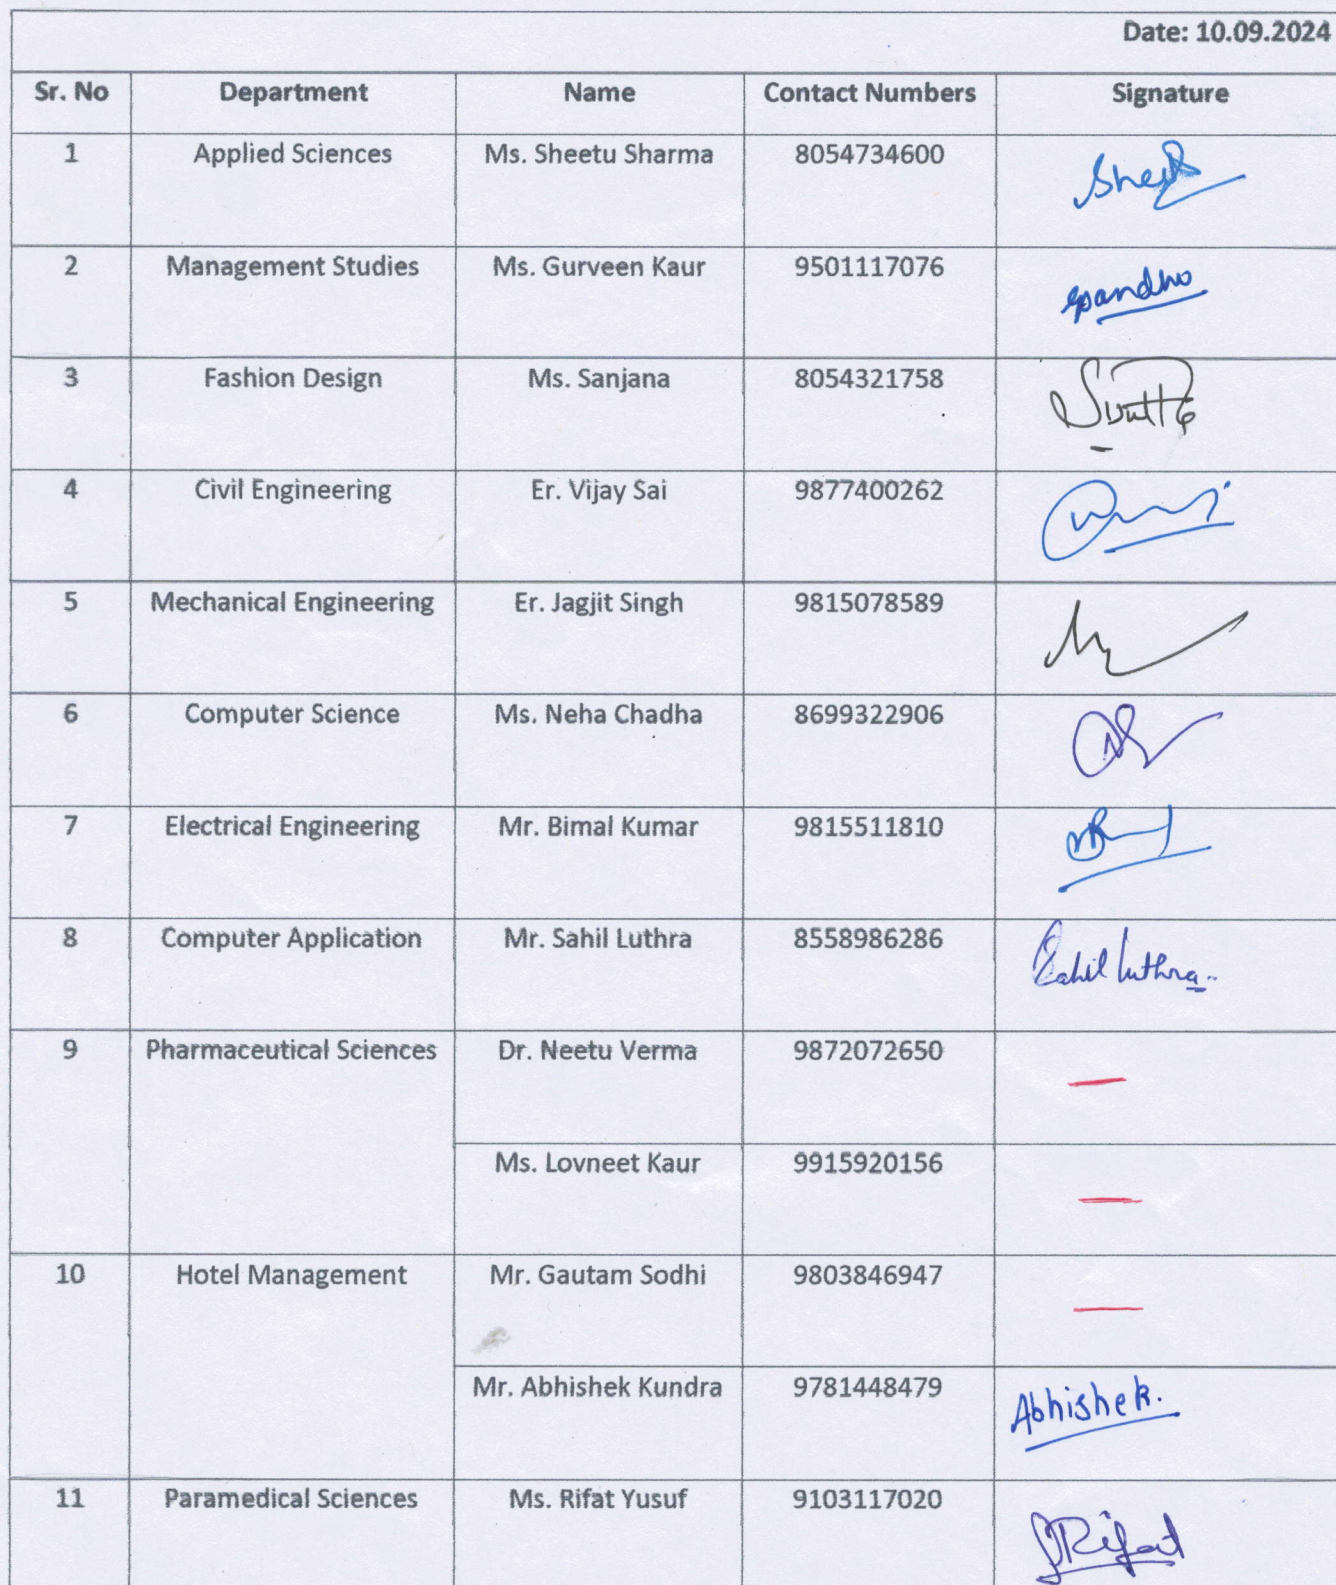 Date: 10.09.2024
Sr. No Department Name Contact Numbers Signature
1 Applied Sciences Ms. Sheetu Sharma 8054734600
2 Management Studies Ms. Gurveen Kaur 9501117076
3 Fashion Design Ms. Sanjana 8054321758
4 Civil Engineering Er. Vijay Sai 9877400262
5 Mechanical Engineering Er. Jagjit Singh 9815078589
6 Computer Science Ms. Neha Chadha 8699322906
7 Electrical Engineering Mr. Bimal Kumar 9815511810
8 Computer Application Mr. Sahil Luthra 8558986286 Sahil Luthra
9 Pharmaceutical Sciences Dr. Neetu Verma 9872072650
Ms. Lovneet Kaur 9915920156
10 Hotel Management Mr. Gautam Sodhi 9803846947
Mr. Abhishek Kundra 9781448479 Abhishek.
11 Paramedical Sciences Ms. Rifat Yusuf 9103117020 Rifat